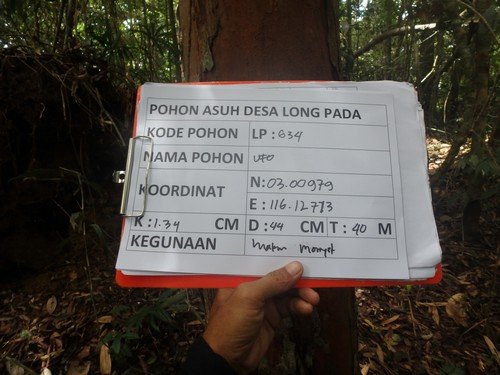 POHON ASUH DESA LONG PADA
KODE POHON LP : 634
NAMA POHON UFO
KOORDINAT N: 03.00979
E : 116.12713
K : 1.34 CM D : 44 CM T : 40 M
KEGUNAAN makan monyet